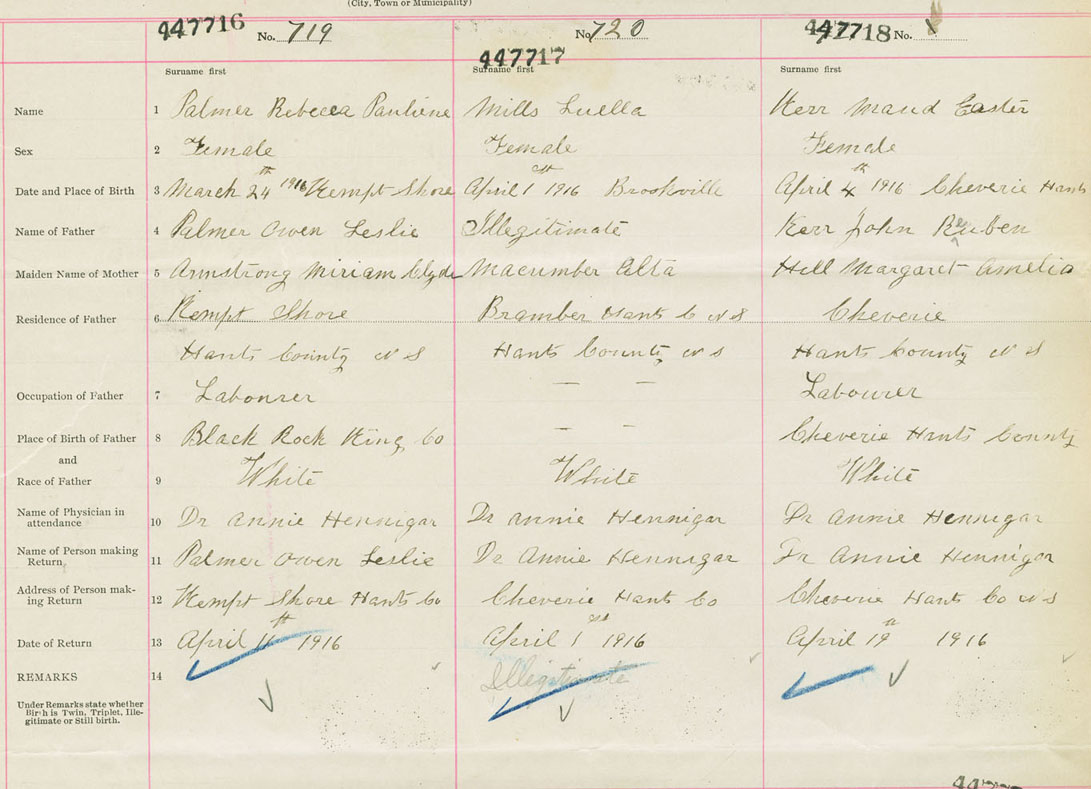 (City, Town or Municipality)
447716 No. 719
No 720
447717
447718 No.
Surname first Surname first Surname first
Name 1 Palmer Rebecca Pauliene Mills Luella Kerr Maud Easter
Sex 2 Female Female Female
Date and Place of Birth 3 March 24th 1916 Kempt Shore April 1st 1916 Brookville April 4th 1916 Cheverie Hants
Name of Father 4 Palmer Owen Leslie Illegitimate Kerr John Reuben
Maiden Name of Mother 5 Armstrong Miriam Clyde Macumber Elta Hill Margaret Amelia
Residence of Father 6 Kempt Shore Bramber Hants C N S Cheverie
Hants County N S Hants County N S Hants County N S
Occupation of Father 7 Labourer — — Labourer
Place of Birth of Father 8 Black Rock King Co — — Cheverie Hants County
and
Race of Father 9 White White White
Name of Physician in
attendance 10 Dr Annie Hennigar Dr Annie Hennigar Dr Annie Hennigar
Name of Person making
Return 11 Palmer Owen Leslie Dr Annie Hennigar Dr Annie Hennigar
Address of Person mak-
ing Return 12 Kempt Shore Hants Co Cheverie Hants Co Cheverie Hants Co N S
Date of Return 13 April 11th 1916 April 1st 1916 April 19th 1916
REMARKS 14 Illegitimate
Under Remarks state whether
Birth is Twin, Triplet, Ille-
gitimate or Still birth.